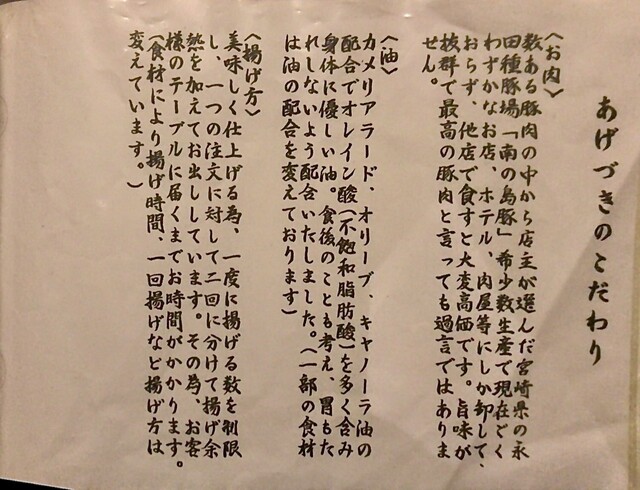 あげづきのこだわり
〈お肉〉
数ある豚肉の中から店主が選んだ宮崎県の永
田種豚場「南の島豚」希少数生産で現在ごく
わずかなお店、ホテル、肉屋等にしか卸して、
おらず、他店で食すと大変高価です。旨味が
抜群で最高の豚肉と言っても過言ではありま
せん。
〈油〉
カメリアラード、オリーブ、キャノーラ油の
配合でオレイン酸(不飽和脂肪酸)を多く含み
身体に優しい油。食後のことも考え、胃もた
れしないよう配合いたしました。(一部の食材
は油の配合を変えております)
〈揚げ方〉
美味しく仕上げる為、一度に揚げる数を制限
し、一つの注文に対して二回に分けて揚げ余
熱を加えてお出ししています。その為、お客
様のテーブルに届くまでお時間がかかります。
(食材により揚げ時間、一回揚げなど揚げ方は
変えています。)